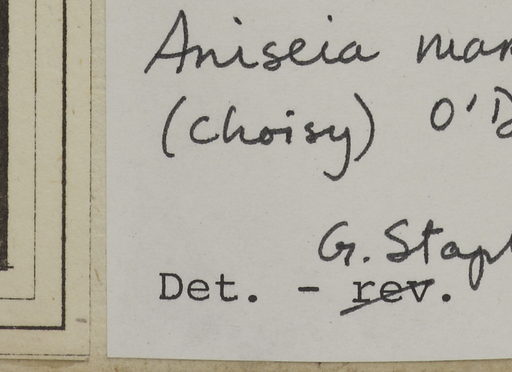 Aniseia mar
(Choisy) O'D
G. Stapl
Det. - rev.